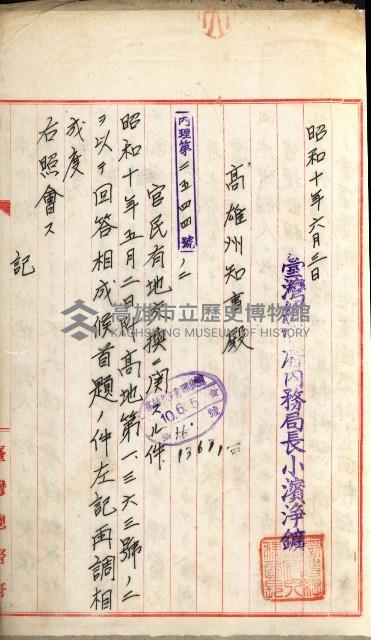 昭和十年六月三日
臺灣總督府內務局長小濱淨鑛
高雄州知事殿
內理第二五四四號ノ二
官民有地交換ニ関スル件
昭和十年五月二日附高地第一、三六三號ノ二
ヲ以テ回答相成候首題ノ件左記再調相
成度
右照會ス
記
10.6.5
高雄市立歷史博物館
KAOHSIUNG MUSEUM OF HISTORY
臺灣總督府